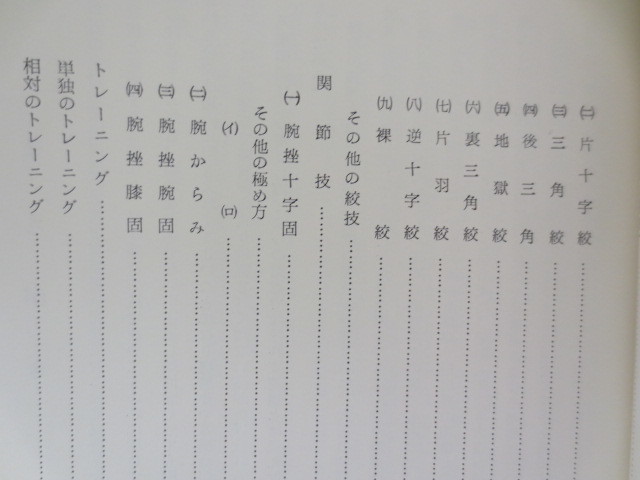 ㈡ 片十字絞
㈢ 三角絞
㈣ 後三角
㈤ 地獄絞
㈥ 裏三角絞
㈦ 片羽絞
㈧ 逆十字絞
㈨ 裸絞
その他の絞技
関節技
㈠ 腕挫十字固
その他の極め方
(イ) (ロ)
㈡ 腕からみ
㈢ 腕挫腕固
㈣ 腕挫膝固
トレーニング
単独のトレーニング
相対のトレーニング